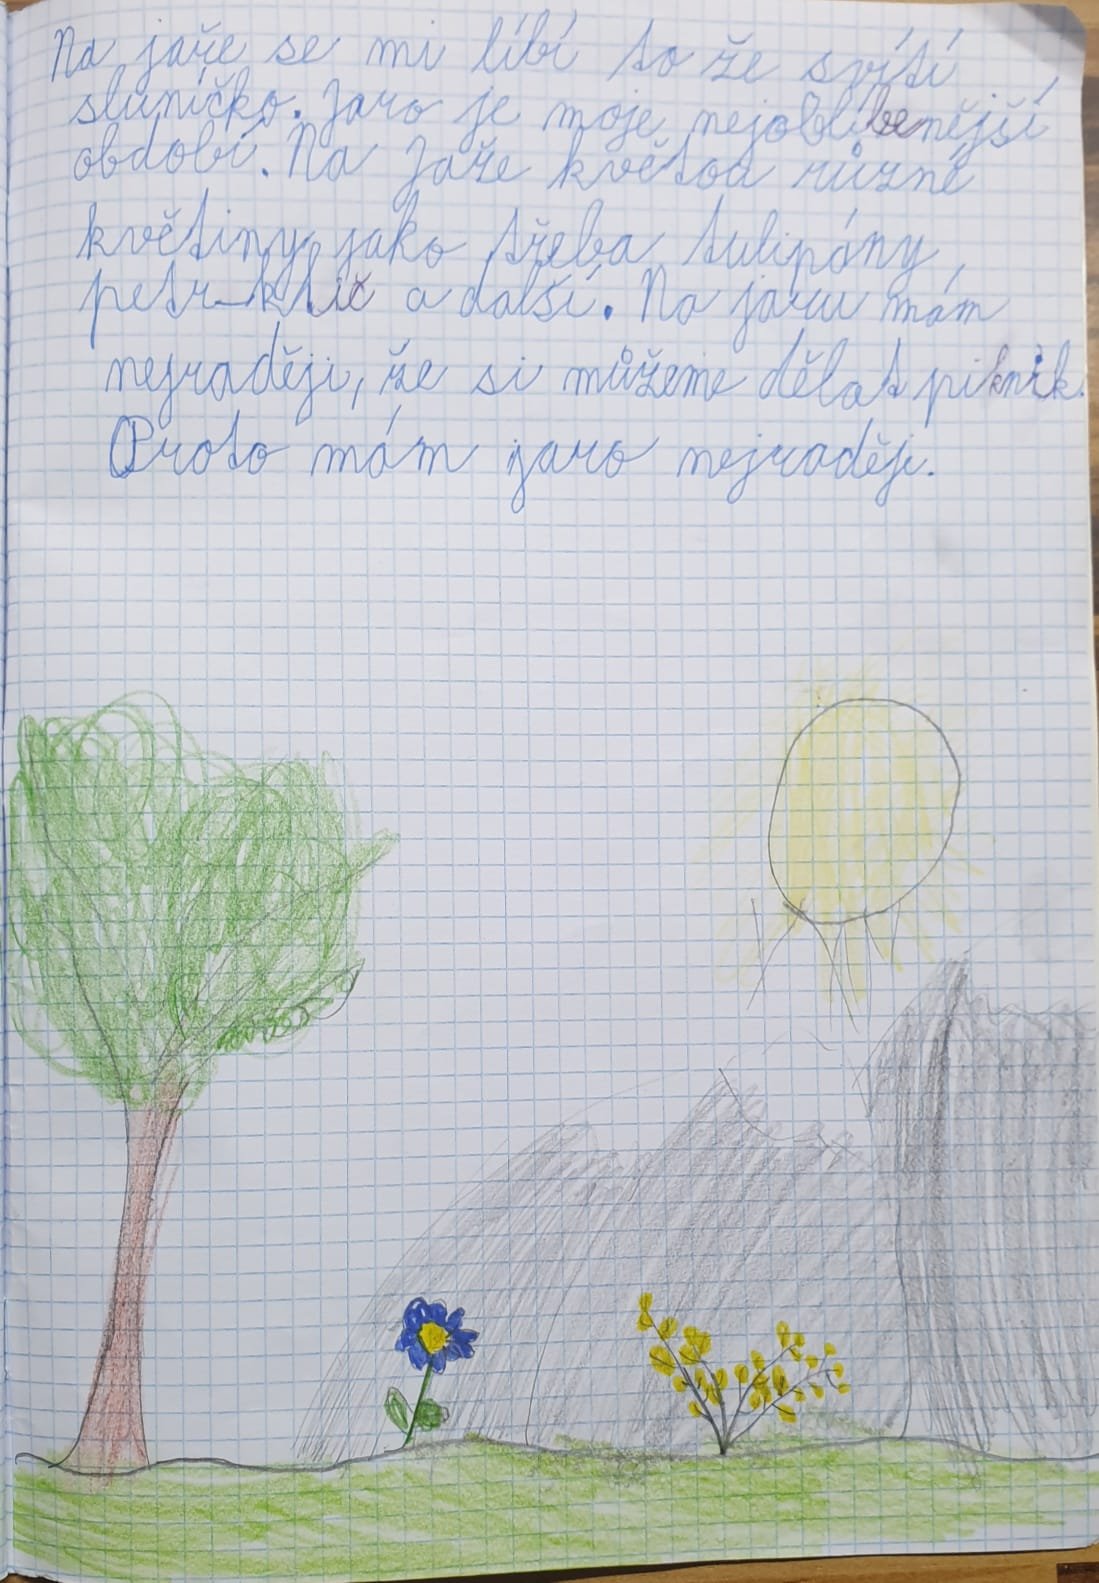 Na jaře se mi líbí to že svítí
sluníčko. Jaro je moje nejoblíbenější
období. Na Jaře květou různé
květiny, jako třeba tulipány,
petr-klíč a další. Na jaru mám
nejraději, že si můžeme dělat piknik.
Proto mám jaro nejraději.